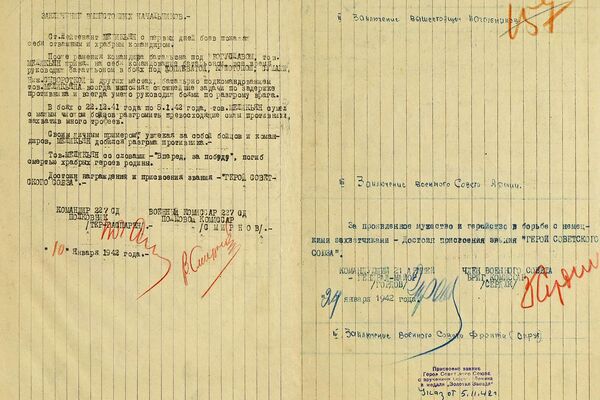 ЗАКЛЮЧЕНИЕ ВЫШЕСТОЯЩИХ НАЧАЛЬНИКОВ.
Ст.лейтенант МЕЛИКЬЯН с первых дней боев показал
себя отважным и храбрым командиром.
После ранения командира батальона под БОГУСЛАВОМ, тов.
МЕЛИКЬЯН принял на себя командование батальоном
руководил батальоном в боях под
и других местах, батальон под командованием
тов. МЕЛИКЬЯНА всегда выполнял сложнейшие задачи по задержке
противника и всегда умело руководил боями по разгрому врага.
В боях с 22.12.41 года по 5.1.42 года, тов. МЕЛИКЬЯН сумел
с малым числом бойцов разгромить превосходящие силы противника,
захватив много трофеев.
Своим личным примером, увлекая за собой бойцов и коман-
диров, МЕЛИКЬЯН добился разгрома противника.
Тов. МЕЛИКЬЯН со словами -"Вперед, за победу", погиб
смертью храбрых героев родины.
Достоин награждения и присвоения звания -"ГЕРОЙ СОВЕТ-
СКОГО СОЮЗА".-
КОМАНДИР 227 СД ВОЕННЫЙ КОМИССАР 227 СД
ПОЛКОВНИК ПОЛКОВОЙ КОМИССАР
/ТЕР-ГАСПАРЯН./ /СМИРНОВ/.
"10" января 1942 года.
157
II Заключение вышестоящих начальников
III Заключение Военного Совета Армии.
За проявленное мужество и геройство в борьбе с немец-
кими захватчиками - Достоин присвоения звания "ГЕРОЙ СОВЕТСКОГО
СОЮЗА".
КОМАНДУЮЩИЙ 21 АРМИЕЙ ЧЛЕН ВОЕННОГО СОВЕТА
ГЕНЕРАЛ-МАЙОР БРИГ. КОМИССАР
/ГОРДОВ/ /СЕРЮК/
"24" января 1942 года.
IV Заключение Военного Совета Фронта (Округа)
Присвоено звание
Героя Советского Союза
с вручением ордена Ленина
и медали „Золотая Звезда"
Указ от 5.11.42 г.